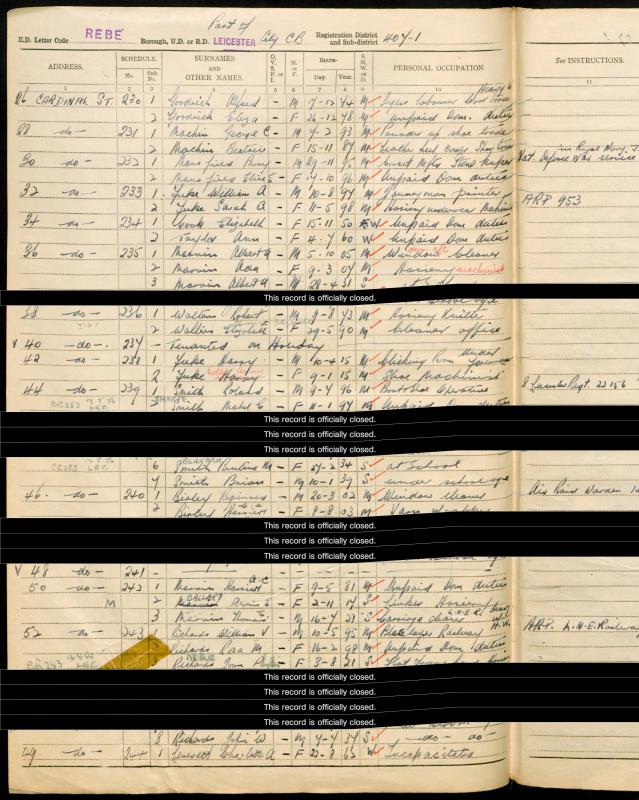 Part of
E.D. Letter Code REBE Borough, U.D. or R.D. LEICESTER City C.B. Registration District and Sub-district 407-1
ADDRESS. SCHEDULE. SURNAMES AND OTHER NAMES. O, V, S, P, or I M. or F. BIRTH— S. M. W. or D. PERSONAL OCCUPATION. See INSTRUCTIONS.
No. Sub. No. Day. Year.
1 2 3 4 5 6 7 8 9 10 11
26 CARDINAL ST. 230 1 Goodrich Alfred - M 7-12 44 M Dyers labourer Wool Goods Heavy W
2 Goodrich Eliza - F 26-12 48 M Unpaid Dom. duties
28 -do- 231 1 Machin George C - M 7-2 93 M Pounder up shoe trade
2 Machin Beatrice - F 15-11 87 M
30 -do- 232 1 Mansfield - M 29-11 95 M Corset Mfrs
in Royal Navy
2 Mansfield - F 14-10 96 M Unpaid Dom duties
Nat. Defence War service
32 -do- 233 1 Juke William A - M 10-8 97 M Journeyman painter ARP 953
2 Juke Sarah A - F 11-5 98 M Hosiery underwear Machinist
34 -do- 234 1 Cook Elizabeth - F 15-11 50 W Unpaid Dom duties
2 Taylor Ann - F 4-7 60 W Unpaid Dom duties
36 -do- 235 1 Marvin Albert G - M 5-10 05 M Window Cleaner own a/c
2 Marvin Ada - F 9-3 07 M Hosiery machinist
3 Marvin Albert G - M 28-4 31 S at School
This record is officially closed.
38 -do- 236 1 Walters Robert - M 9-8 43 M Hosiery Knitter
2 Walters Elizabeth E - F 29-5 90 M Cleaner office
V 40 -do- 237 - Tenanted on Holiday
42 -do- 238 1 Juke Harry - M 10-4 15 M Clicking Room Under Foreman
2 Juke - F 9-1 15 M Shoe Machinist
44 -do- 239 1 Smith Roland - M 9-4 96 M Boot & Shoe Operative 8 Leicester Regt. 22156
CR283 LEC
2 Smith Mabel E - F 11-1 97 M Unpaid Dom duties
This record is officially closed.
This record is officially closed.
This record is officially closed.
CR283 LEC 6 Smith Pauline M - F 27-2 34 S at School
7 Smith Brian - M 10-1 39 S under school age
46. -do- 240 1 Bexley Reginald - M 20-3 02 M Window cleaner Air Raid Warden
2 Bexley Harriett - F 8-8 03 M Yarn
This record is officially closed.
This record is officially closed.
This record is officially closed.
V 48 -do- 241 -
50 -do- 242 1 Marvin Harriett A.C - F 9-5 81 M Unpaid Dom duties
M 2 - F 2-11 17 S Linker Hosiery
3 Marvin Thomas - M 16-7 21 S Carriage cleaner L.N.E.R. Heavy W
52 -do- 243 1 Richards William V - M 10-5 95 M Platelayer Railway H.W. ARP. L.N.E. Railway
2 Richards Rosa M - F 16-2 98 M Unpaid Dom. duties
CR283 LEC 3 Richards Joan - F 3-8 21 S
This record is officially closed.
This record is officially closed.
This record is officially closed.
This record is officially closed.
8 Richards John W - M 7-4 37 S -do- do-
49 -do- 244 1 Charlotte A - F 22-8 63 W Incapacitated